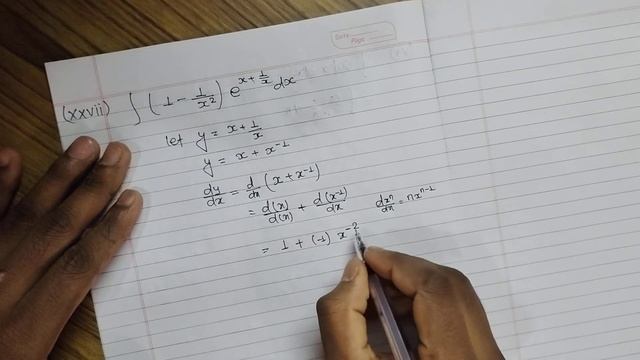 Date
Page
(xxvii) ∫ (1 - 1/x²) e^(x + 1/x) dx
let y = x + 1/x
y = x + x⁻¹
dy/dx = d/dx (x + x⁻¹)
= d(x)/d(x) + d(x⁻¹)/dx    dxⁿ/dx = nxⁿ⁻¹
= 1 + (-1) x⁻²